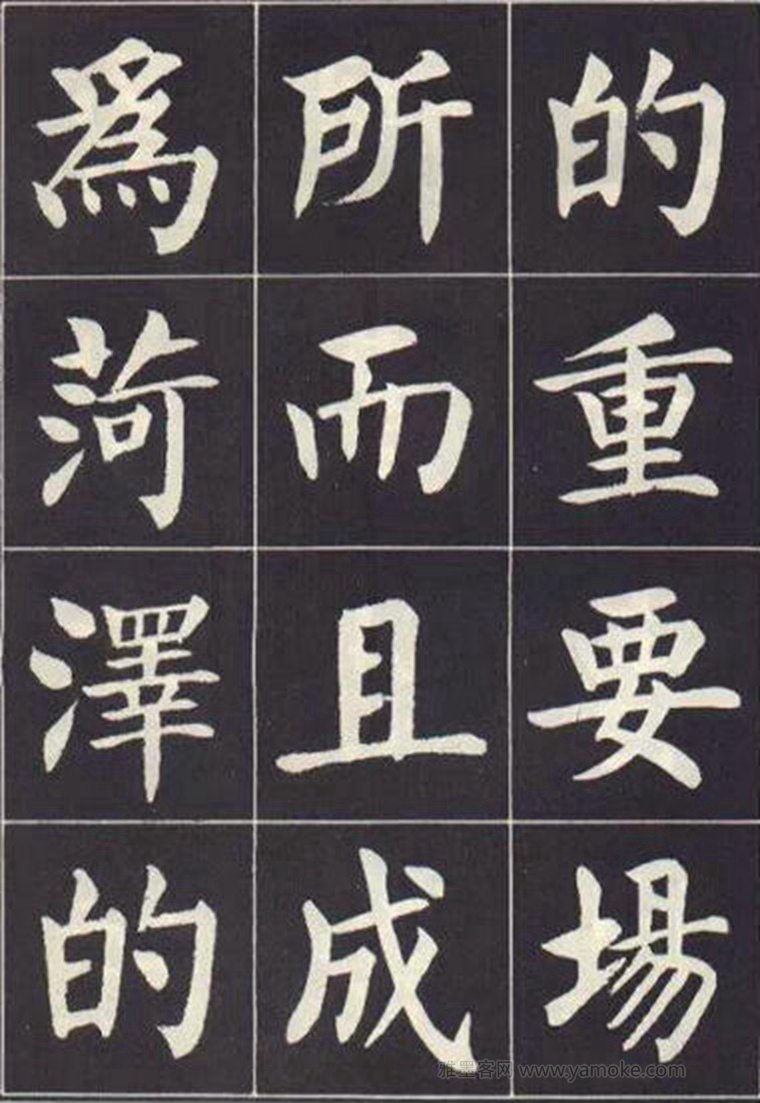 的重要場
所而且成
爲菏澤的
雅墨客网 www.yamoke.com